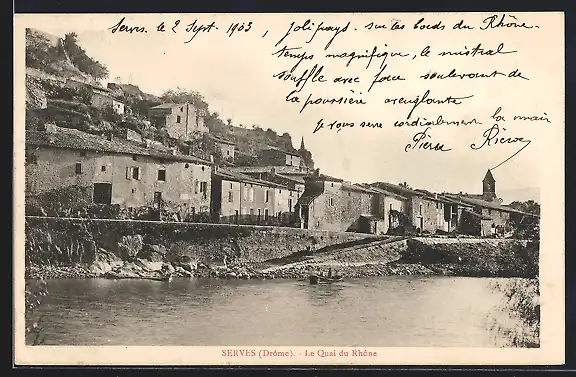 Serves. le 2 Sept. 1903, Joli pays. sur les bords du Rhône.
temps magnifique, le mistral
souffle avec force soulevant de
la poussière aveuglante
Je vous serre cordialement la main
Pierre
SERVES (Drôme). - Le Quai du Rhône